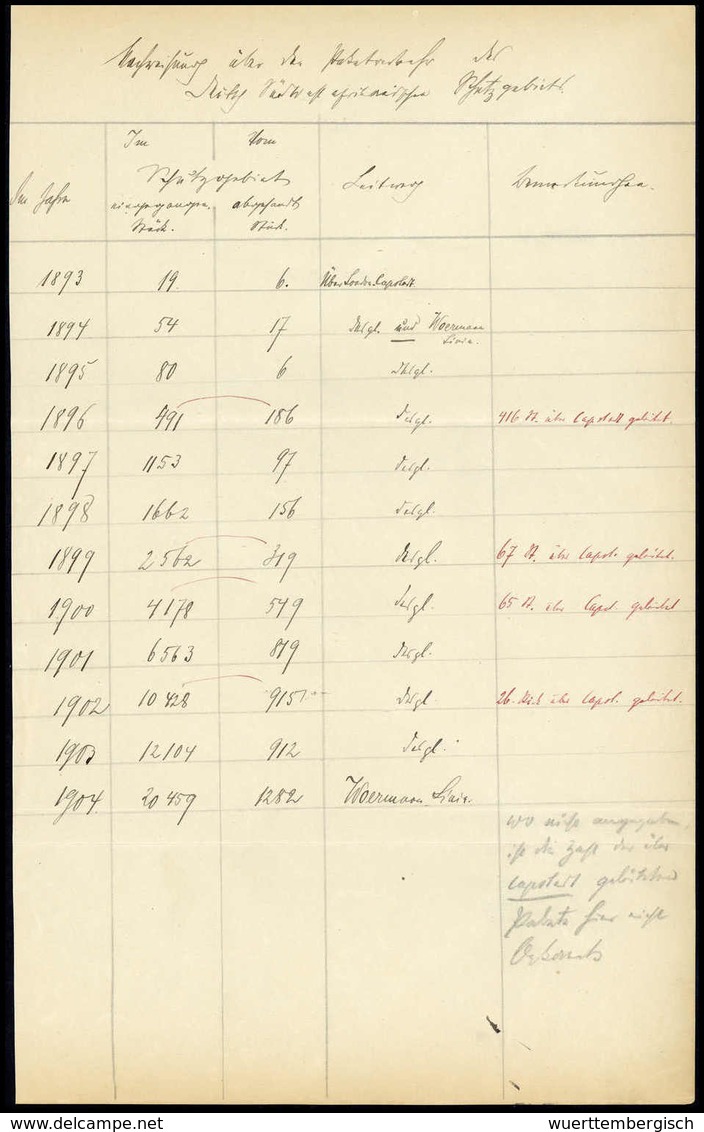 Nachweisung über den Paketverkehr des
Deutsch Südwestafrikanischen Schutzgebiets.
Im Vom
Schutzgebiet
Im Jahre eingegangen. abgesandt Leitweg Bemerkungen.
Stück. Stück.
1893 19 6. Über London Capstadt
1894 54 17 desgl. und Woermann
Linie.
1895 80 6 desgl.
1896 491 186 desgl. 416 St. über Capstadt geleitet.
1897 1153 97 desgl.
1898 1662 156 desgl.
1899 2562 319 desgl. 67 St. über Capst. geleitet.
1900 4178 549 desgl. 65 St. über Capst. geleitet
1901 6563 819 desgl.
1902 10428 915 desgl. 26 über Capst. geleitet.
1903 12104 912 desgl.
1904 20459 1282 Woermann Linie.
wo nicht angegeben,
ist die Zahl der über
Capstadt geleiteten
Pakete hier nicht
bekannt
wuerttembergisch